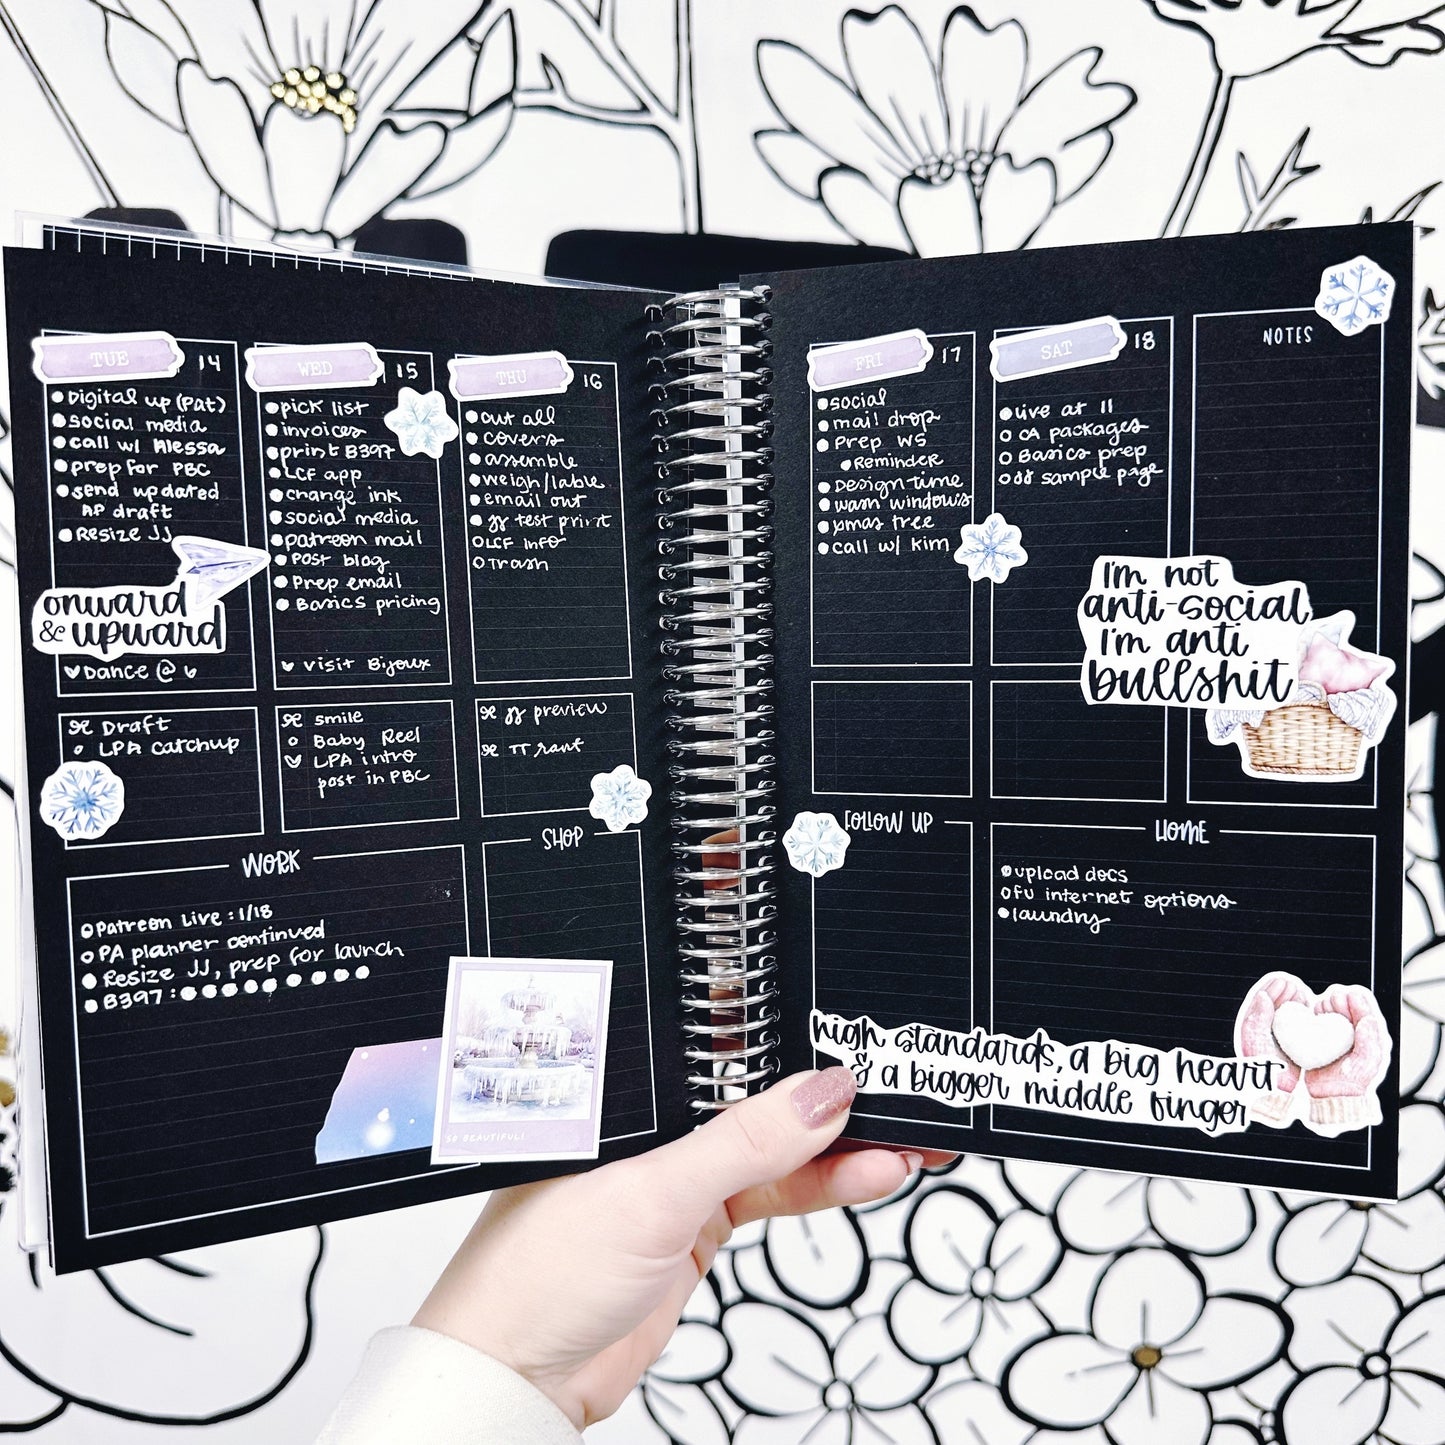 TUE
14
Digital up (Pat)
social media
call w/ Alessa
prep for PBC
send updated
AP draft
Resize JJ
onward
& upward
Dance @ 6
Draft
LPA catchup
WED
15
pick list
invoices
print B397
LCF app
change ink
social media
patreon mail
Post blog
Prep email
Basics pricing
visit Bijoux
smile
Baby Reel
LPA intro
post in PBC
THU
16
cut all
covers
assemble
weigh/lable
email out
JJ test print
LCF info
Trash
JJ preview
TT rant
WORK
Patreon Live: 1/18
PA planner continued
Resize JJ, prep for launch
B397:
SHOP
SO BEAUTIFUL!
FRI
17
social
mail drop
Prep WS
Reminder
Design time
wash windows
xmas tree
call w/ Kim
SAT
18
Live at 11
CA packages
Basics prep
JJ sample page
NOTES
I'm not
anti-social
I'm anti
bullshit
FOLLOW UP
HOME
upload docs
FU internet options
laundry
high standards, a big heart
& a bigger middle finger